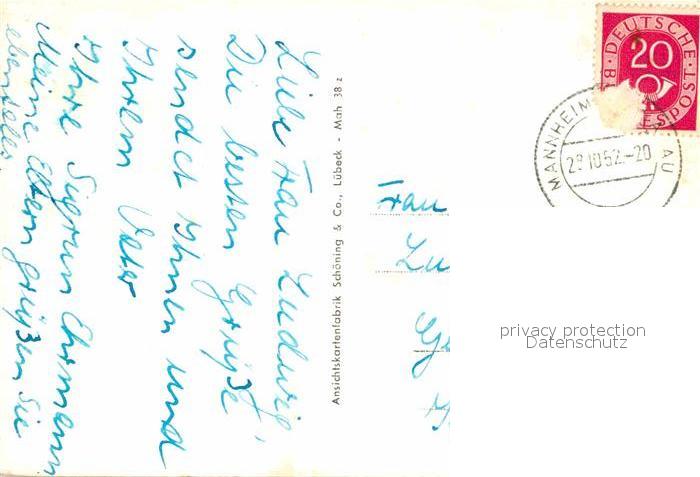 Liebe Frau Ludwig,
Die besten Grüße
sendet Ihnen und
Ihrem Vater
Ihre Sigrun
Meine Eltern grüßen Sie
ebenfalls.
Ansichtskartenfabrik Schöning & Co., Lübeck - Mah 38 z
DEUTSCHE
20
MANNHEIM
AU
28.10.52.-20
Frau
Lu
Ge
privacy protection
Datenschutz